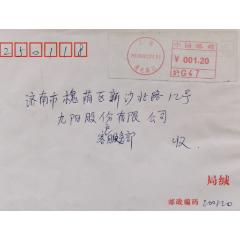 250118
中国邮政
¥ 001.20
G47
济南市槐荫区新沙北路12号
九阳股份有限公司
客服部
收
局缄
邮政编码